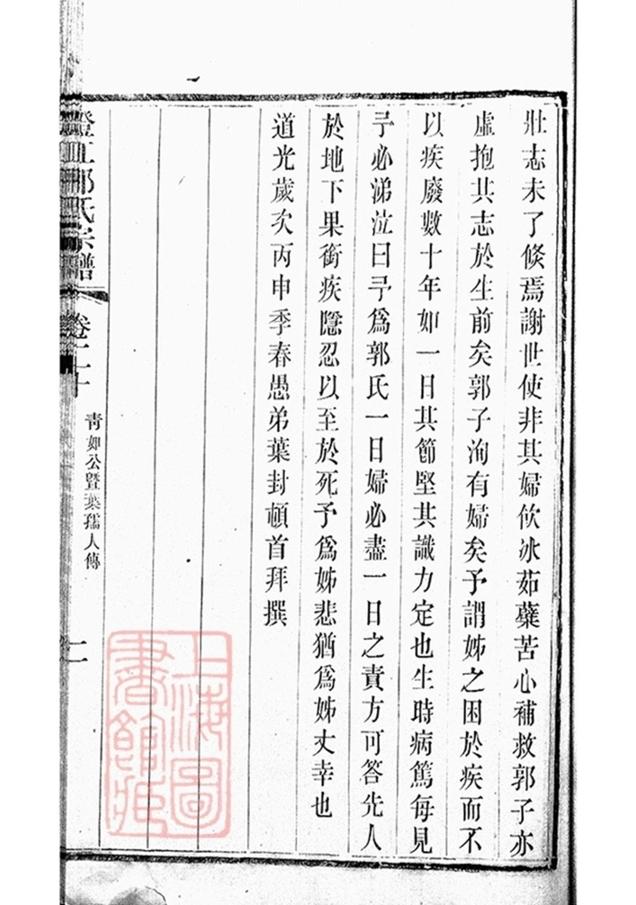 壯志未了倐焉謝世使非其婦飲冰茹蘗苦心補救郭子亦
虛抱其志於生前矣郭子洵有婦矣予謂姊之困於疾而不
以疾廢數十年如一日其節堅其識力定也生時病篤每見
予必涕泣曰予爲郭氏一日婦必盡一日之責方可答先人
於地下果銜疾隱忍以至於死予爲姊悲猶爲姊丈幸也
道光歲次丙申季春愚弟葉封頓首拜撰
澄江郭氏宗譜
卷二十
青如公暨葉孺人傳
二
上海圖書館藏